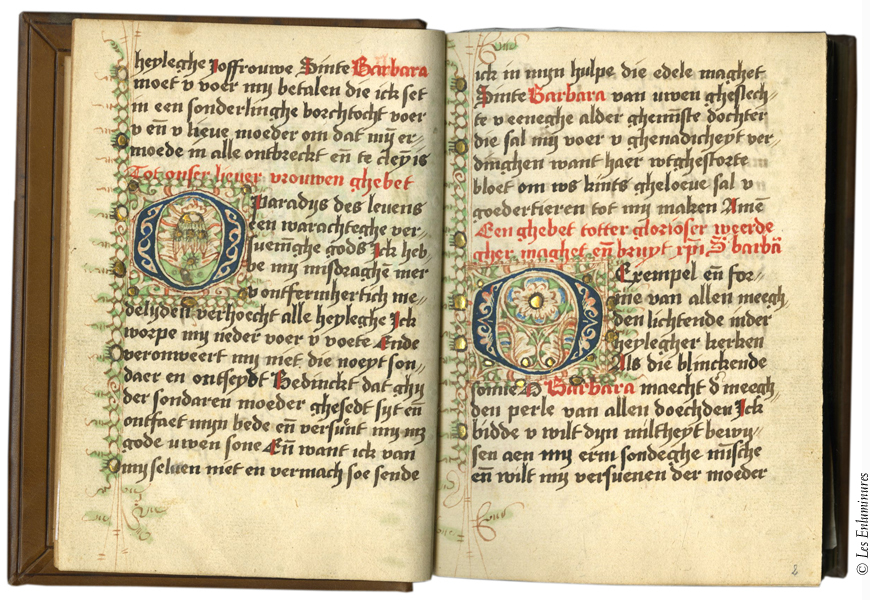 heyleghe Joffrouwe Sinte Barbara
moet v voer my betalen die ick set
in een sonderlinghe borchtocht voer
v en̄ v lieue moeder om dat mȳ er=
moede in alle ontbreckt en̄ te cley is
Tot onser lieuer vrouwen ghebet
O Paradys des leuens
een warachteghe ver=
sueninghe gods Ick heb=
be my misdraghen mer
v ontfermhertich me=
delijden verhoecht alle heyleghe Ick
worpe my neder voer v voete Ende
veronweert my met die noeyt son=
daer en ontseydt Bedinckt dat ghy
der sondaren moeder ghesedt syt en̄
ontfaet myn bede en̄ versunt my mz
gode uwen sone En̄ want ick van
my seluen niet en vermach soe sende
ick in myn hulpe die edele maghet
Sinte Barbara van uwen gheslech=
te v eeneghe alder ghemīste dochter
die sal my voer v ghenadicheyt ver=
dinghen want haer wtghestorte
bloet om ws kints gheloeue sal v
goedertieren tot my maken Amē
Een ghebet totter glorioser weerde
gher maghet en̄ bruyt xp̄i S̄ barbā
O Exempel en̄ for=
me van allen meegh
den lichtende inder
heylegher kerken
Als die blinckende
sonne O Barbara maecht d̄ meegh
den perle van allen doechden Ick
bidde v wilt dyn miltheyt bewy=
sen aen my erm sondeghe mīsche
en̄ wilt my versuenen der moeder
2
© Les Enluminures